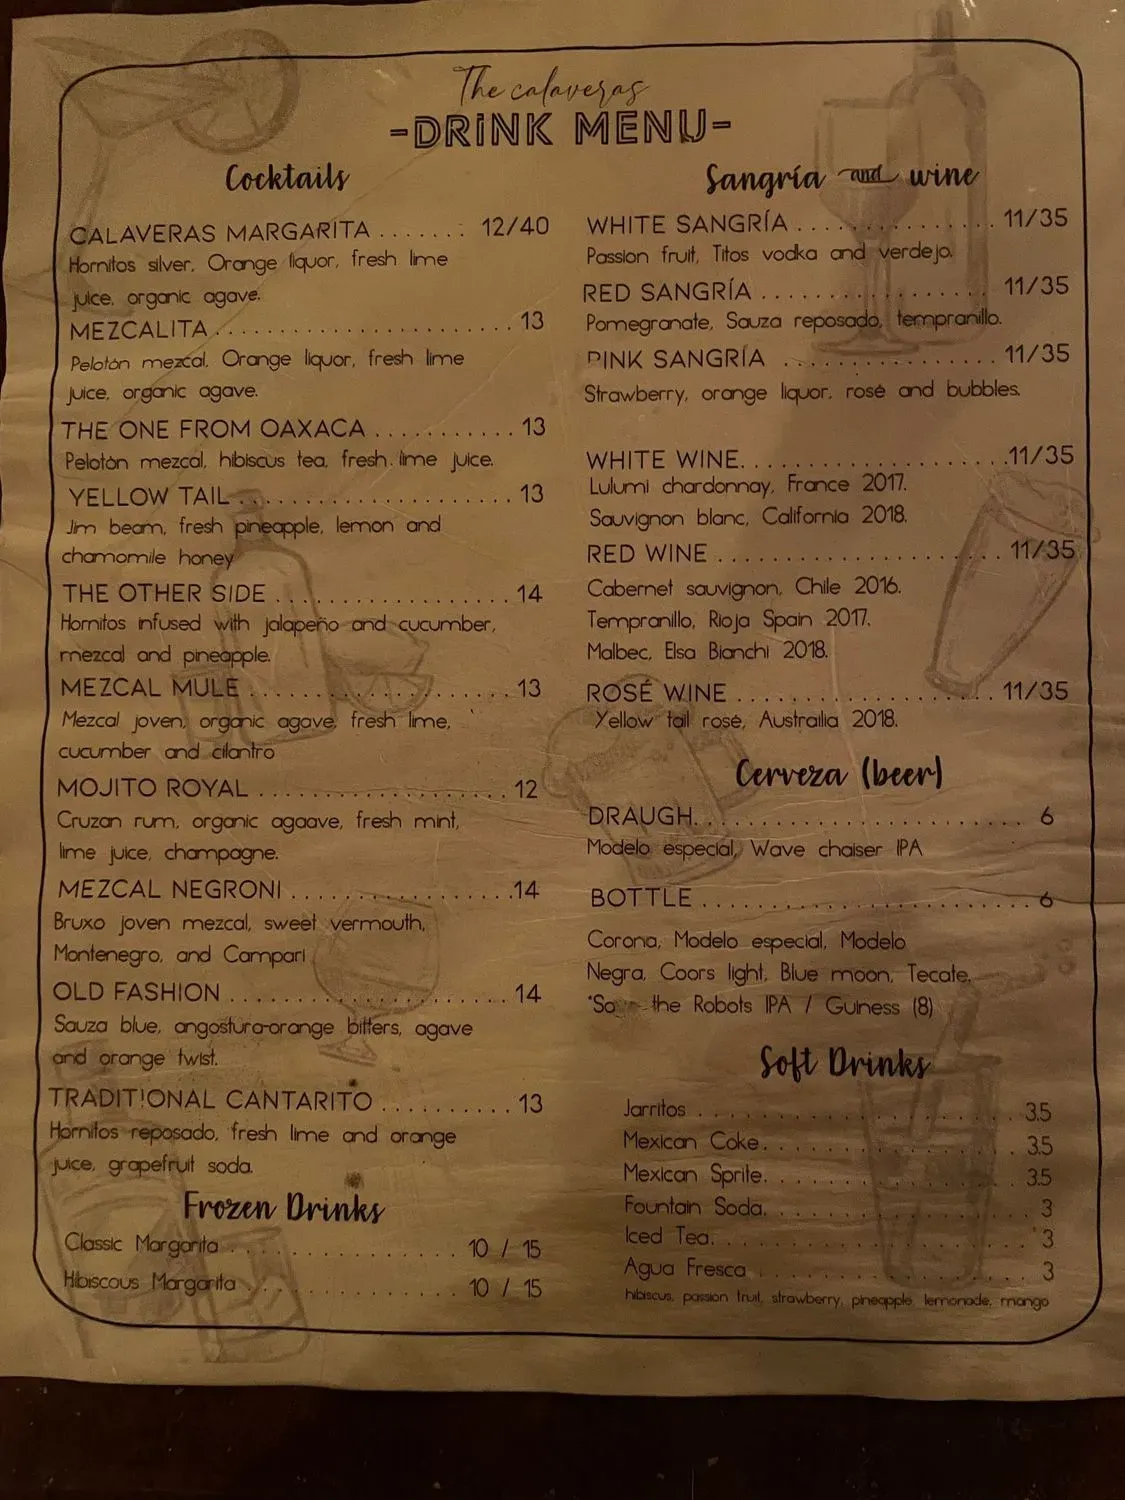 The calaveras
-DRINK MENU-
Cocktails
CALAVERAS MARGARITA ....... 12/40
Hornitos silver, Orange liquor, fresh lime
juice, organic agave.
MEZCALITA ....................... 13
Pelotón mezcal, Orange liquor, fresh lime
juice, organic agave.
THE ONE FROM OAXACA ........... 13
Pelotón mezcal, hibiscus tea, fresh lime juice.
YELLOW TAIL ..................... 13
Jim beam, fresh pineapple, lemon and
chamomile honey
THE OTHER SIDE .................. 14
Hornitos infused with jalapeño and cucumber,
mezcal and pineapple.
MEZCAL MULE .................... 13
Mezcal joven, organic agave, fresh lime,
cucumber and cilantro
MOJITO ROYAL ................... 12
Cruzan rum, organic agaave, fresh mint,
lime juice, champagne.
MEZCAL NEGRONI ................. 14
Bruxo joven mezcal, sweet vermouth,
Montenegro, and Campari
OLD FASHION ..................... 14
Sauza blue, angostura-orange bitters, agave
and orange twist.
TRADITIONAL CANTARITO .......... 13
Hornitos reposado, fresh lime and orange
juice, grapefruit soda.
Frozen Drinks
Classic Margarita ................. 10 / 15
Hibiscous Margarita ................ 10 / 15
Sangría and wine
WHITE SANGRÍA ................ 11/35
Passion fruit, Titos vodka and verdejo.
RED SANGRÍA ................... 11/35
Pomegranate, Sauza reposado, tempranillo.
PINK SANGRÍA ................. 11/35
Strawberry, orange liquor, rosé and bubbles.
WHITE WINE ..................... 11/35
Lulumi chardonnay, France 2017.
Sauvignon blanc, California 2018.
RED WINE ....................... 11/35
Cabernet sauvignon, Chile 2016.
Tempranillo, Rioja Spain 2017.
Malbec, Elsa Bianchi 2018.
ROSÉ WINE ..................... 11/35
Yellow tail rosé, Austrailia 2018.
Cerveza (beer)
DRAUGH .......................... 6
Modelo especial, Wave chaiser IPA
BOTTLE .......................... 6
Corona, Modelo especial, Modelo
Negra, Coors light, Blue moon, Tecate.
the Robots IPA / Guiness (8)
Soft Drinks
Jarritos ........................ 3.5
Mexican Coke .................... 3.5
Mexican Sprite .................. 3.5
Fountain Soda ................... 3
Iced Tea ........................ 3
Agua Fresca ..................... 3
hibiscus, passion fruit, strawberry, pineapple, lemonade, mango